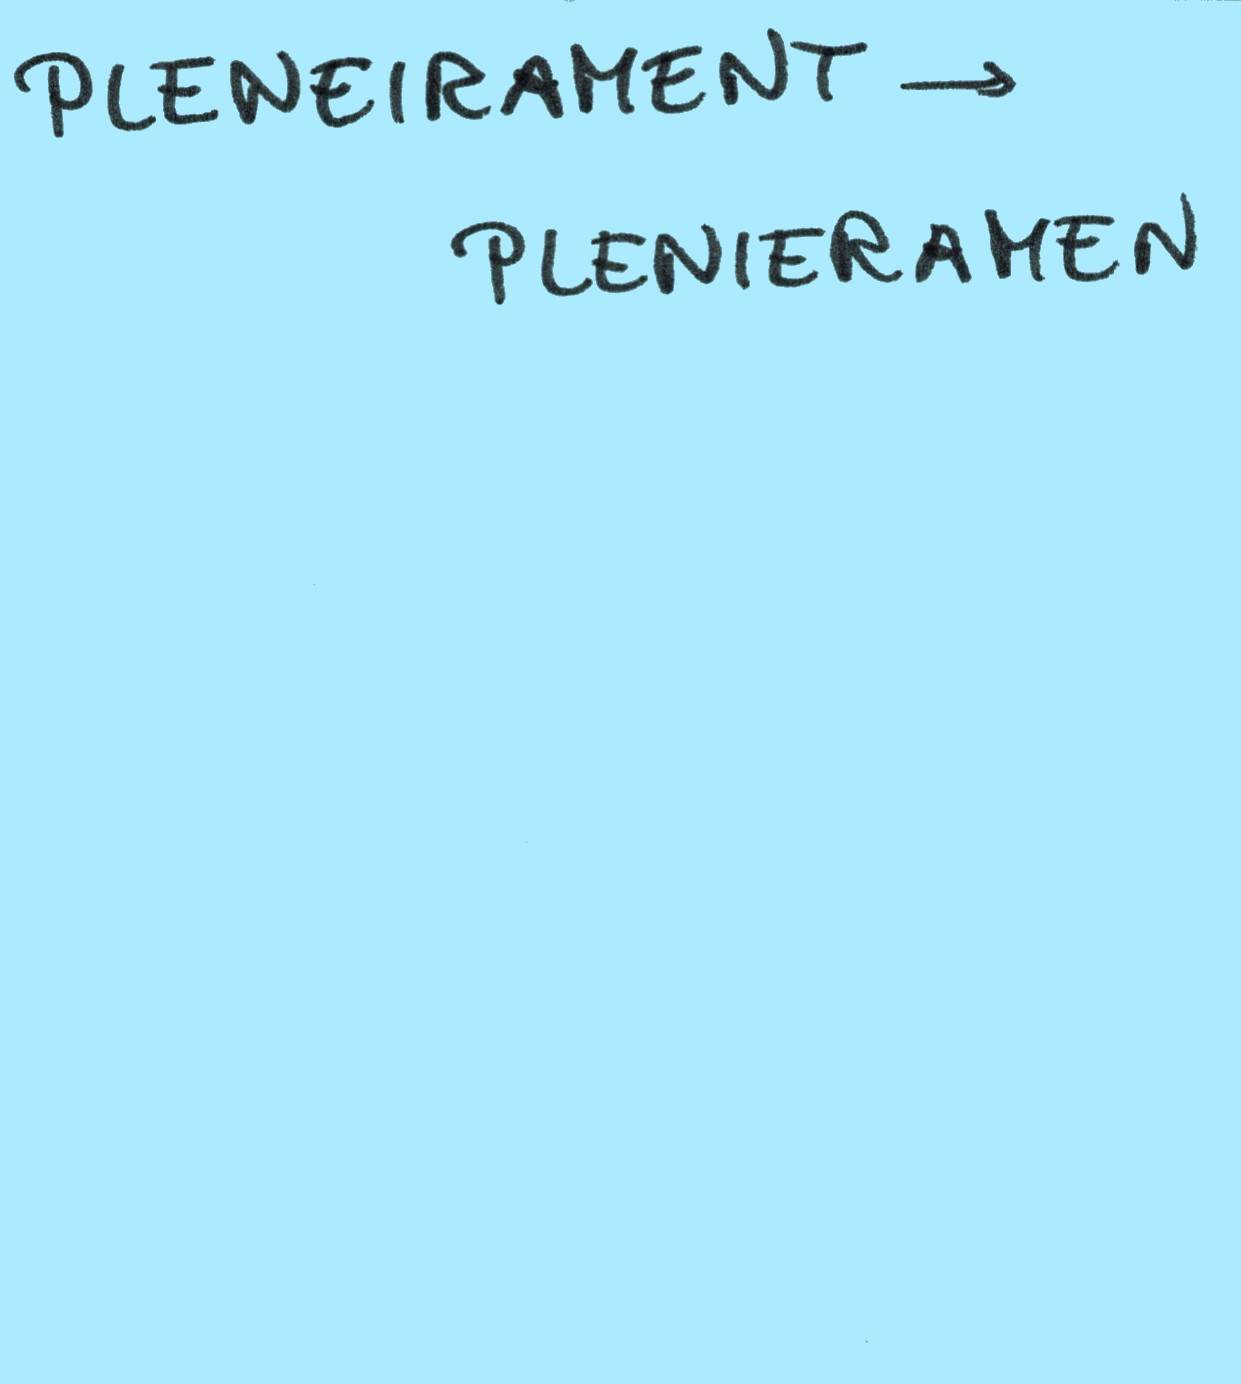 PLENEIRAMENT →
PLENIERAMEN